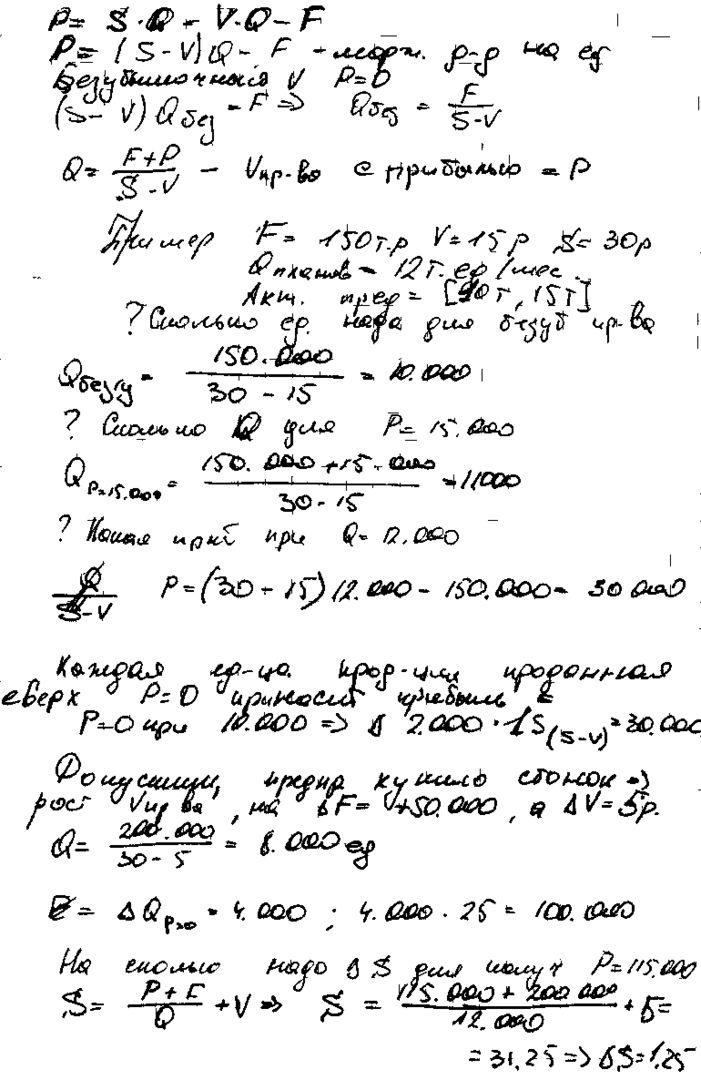 P = S·Q - V·Q - F
P = (S-V)Q - F - марж. р-р на ед
Безубыточный V P=0
(S-V) Qбез = F => Qбез = F/(S-V)
Q = (F+P)/(S-V) - Vпр-ва с прибылью = P
Пример F= 150т.р V=15р S= 30р
Qпланов = 12т.ед/мес.
пред = [10т, 15т]
? Сколько ед. надо для безуб пр-ва
Qбезу = 150.000/(30-15) = 10.000
? Сколько Q для P= 15.000
Q P=15.000 = (150.000+15.000)/(30-15) = 11000
? Какая приб при Q= 12.000
P=(30-15)12.000 - 150.000= 30 000
Каждая ед-ца. прод-ции проданная
сверх P=0 приносит прибыль =
P=0 при 10.000 => Δ 2.000·15(S-V) = 30.000
Допустим, предпр купило станок =>
рост Vпр ва, на ΔF= +50.000, а ΔV=5р.
Q= 200.000/(30-5) = 8.000 ед
= ΔQ P=0 = 4.000 ; 4.000·25 = 100.000
На сколько надо ΔS для получ P=115.000
S= (P+F)/Q + V => S = (115.000+200 000)/12.000 + 5=
= 31,25 => ΔS=1,25